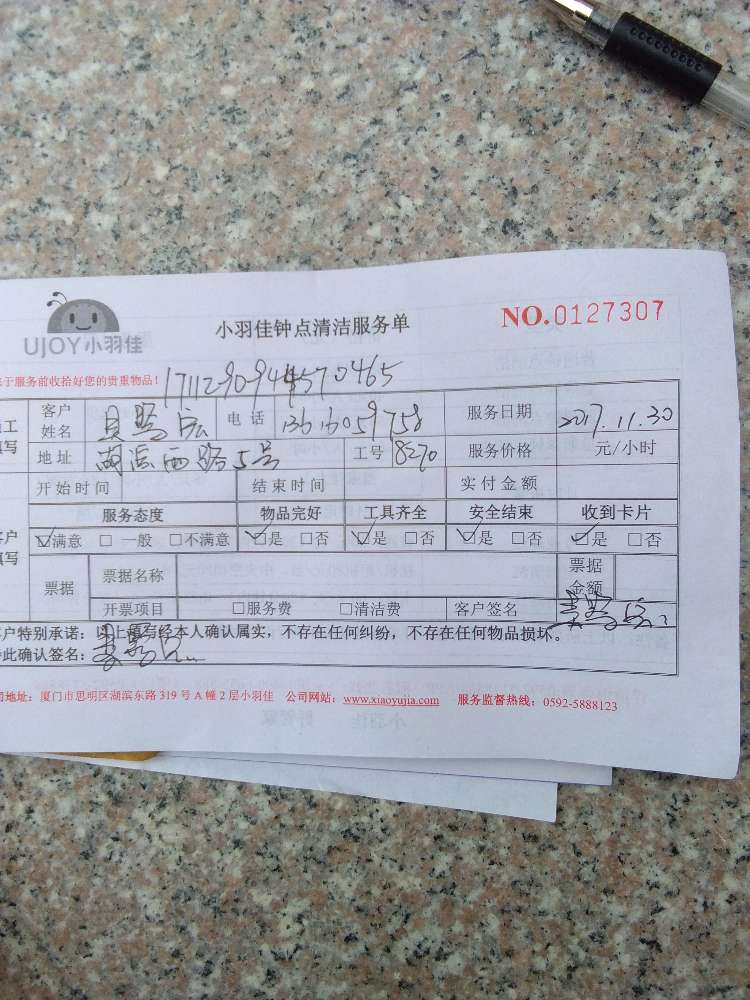 UJOY小羽佳
小羽佳钟点清洁服务单
NO.0127307
于服务前收拾好您的贵重物品！
17112909444570465
工 客户姓名 电话 13616059758 服务日期 2017.11.30
填写 地址 湖滨西路5号 工号 8270 服务价格 元/小时
开始时间 结束时间 实付金额
服务态度 物品完好 工具齐全 安全结束 收到卡片
户填写 ☑满意 □一般 □不满意 ☑是 □否 ☑是 □否 ☑是 □否 ☑是 □否
票据 票据名称 票据金额
开票项目 □服务费 □清洁费 客户签名
户特别承诺：以上填写经本人确认属实，不存在任何纠纷，不存在任何物品损坏。
此确认签名：
司地址：厦门市思明区湖滨东路 319 号 A 幢 2 层小羽佳 公司网站：www.xiaoyujia.com 服务监督热线：0592-5888123